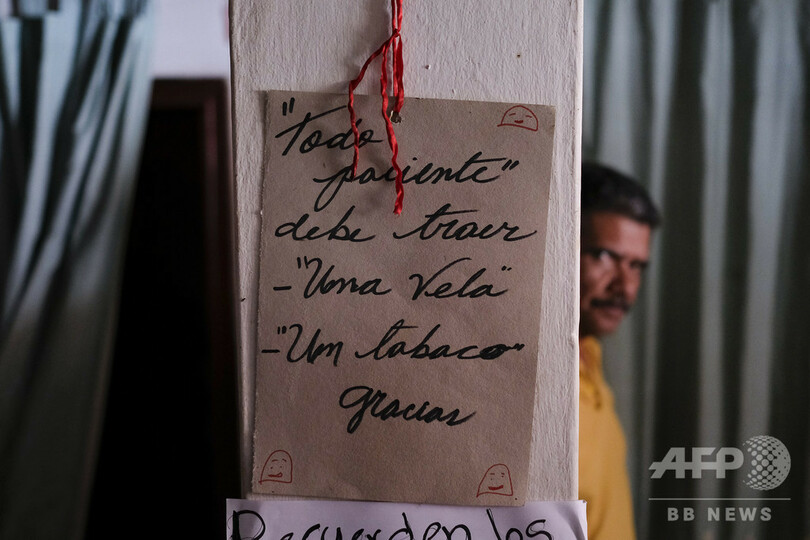 "Todo
paciente"
debe traer
- "Una Vela"
- "Un tabaco"
gracias
Recuerden los
AFP
BB NEWS